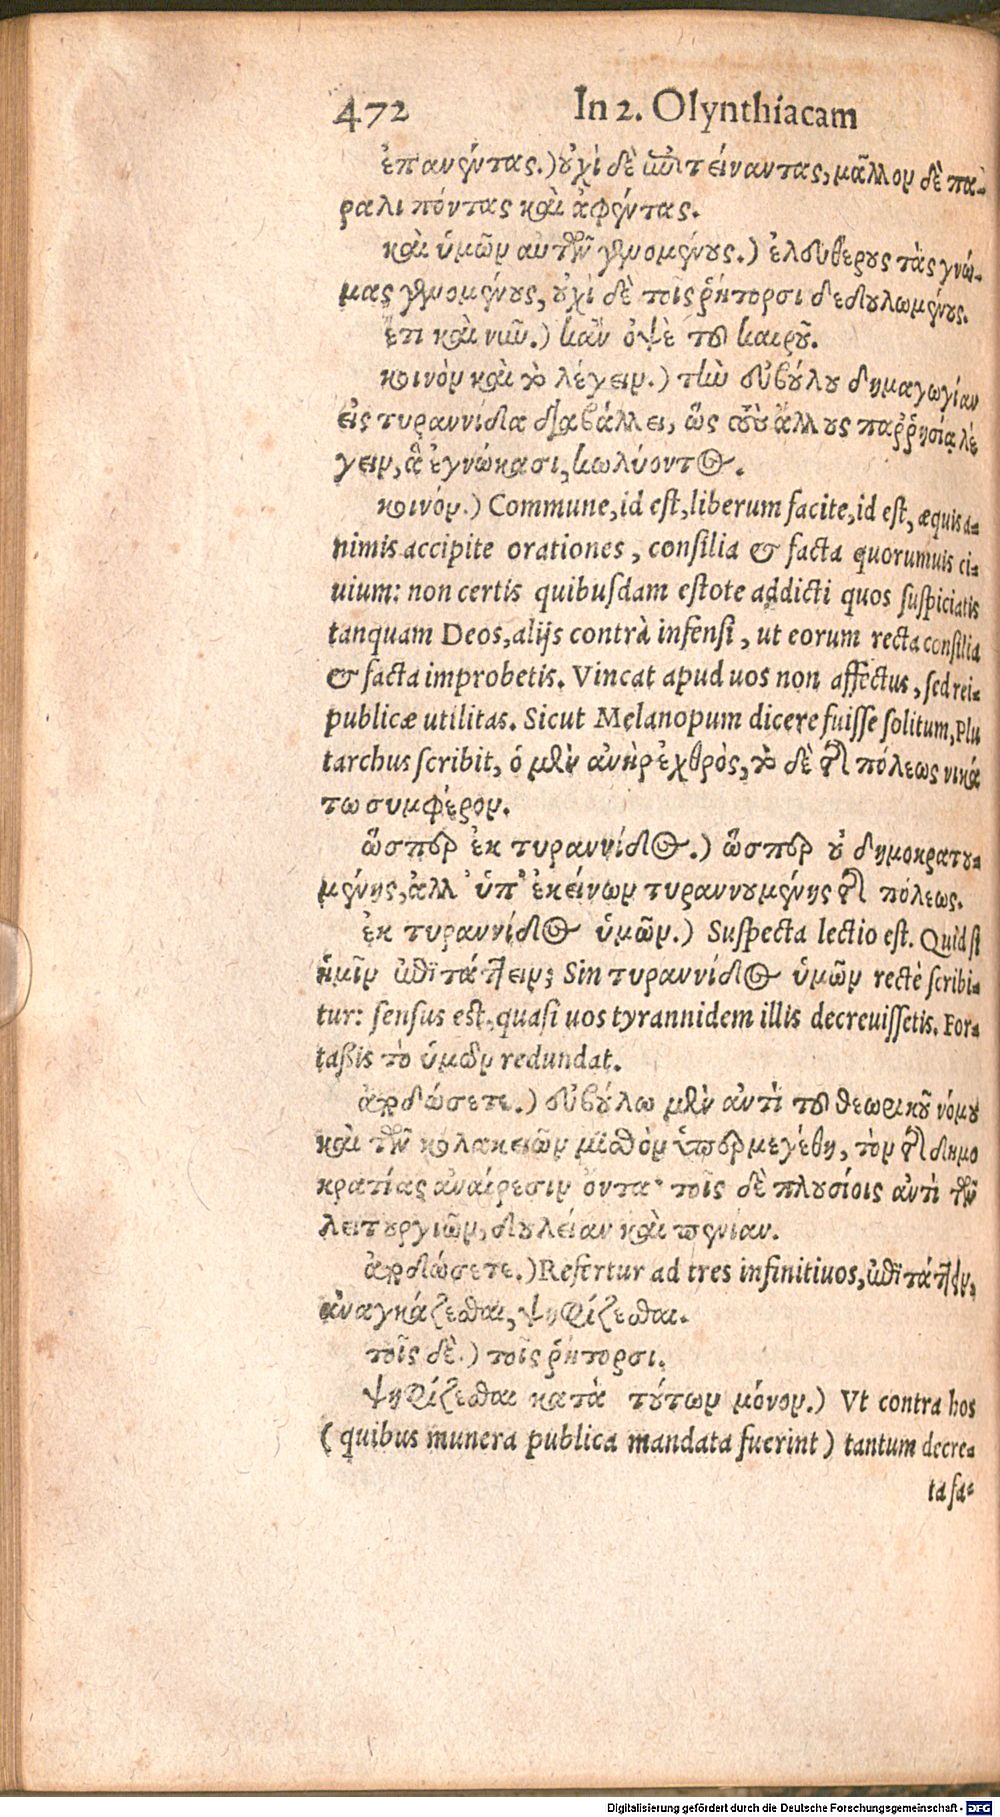 472 In 2. Olynthiacam
ἐπανέντας.) οὐχὶ δὲ ἐπιτείναντας, μᾶλλον δὲ πα-
ραλιπόντας καὶ ἀφέντας.
καὶ ὑμῶν αυτῶν γενομένους.) ἐλευθέρους τὰς γνώ-
μας γενομένους, οὐχὶ δὲ τοῖς ῥήτορσι δεδουλωμένους.
ἔτι καὶ νῦν.) κἂν ὀψὲ τοῦ καιροῦ.
κοινὸν καὶ τὸ λέγειν.) τὴν εὐβούλου δημαγωγίαν
εἰς τυραννίδα διαβάλλει, ὡς τοὺς ἄλλους παῤῥησίᾳ λέ
γειν, ἃ ἐγνώκασι, κωλύοντος.
κοινόν.) Commune, id est, liberum facite, id est, æquis a-
nimis accipite orationes, consilia & facta quorumuis ci-
uium: non certis quibusdam estote addicti quos suspiciatis
tanquam Deos, alijs contrà infensi, ut eorum recta consilia
& facta improbetis. Vincat apud uos non affectus, sed rei-
publicæ utilitas. Sicut Melanopum dicere fuisse solitum, Plu
tarchus scribit, ὁ μὲν ἀνὴρ ἐχθρὸς, τὸ δὲ τῆς πόλεως νικά
τω συμφέρον.
ὥσπερ ἐκ τυραννίδος.) ὥσπερ οὐ δημοκρατου-
μένης, ἀλλ' ὑπ' ἐκείνων τυραννουμένης τῆς πόλεως.
ἐκ τυραννίδος ὑμῶν.) Suspecta lectio est. Quid si
ἡμῖν ἐπιτάττειν; Sin τυραννίδος ὑμῶν rectè scribi-
tur: sensus est, quasi uos tyrannidem illis decreuissetis. For-
taßis τὸ ὑμῶν redundat.
ἀποδώσετε.) εὐβούλω μὲν ἀντὶ τοῦ θεωρικοῦ νόμου
καὶ τῶν κολακειῶν μισθὸν ὑπερμεγέθη, τὸν τῆς δημο
κρατίας ἀναίρεσιν ὄντα· τοῖς δὲ πλουσίοις ἀντὶ τῶν
λειτουργιῶν, δουλείαν καὶ πενίαν.
ἀποδώσετε.) Refertur ad tres infinitiuos, ἐπιτάττειν,
ἀναγκάζεσθαι, ψηφίζεσθαι.
τοῖς δὲ.) τοῖς ῥήτορσι.
ψηφίζεσθαι κατὰ τούτων μόνον.) Vt contra hos
(quibus munera publica mandata fuerint) tantum decre-
ta fa-
Digitalisierung gefördert durch die Deutsche Forschungsgemeinschaft - DFG